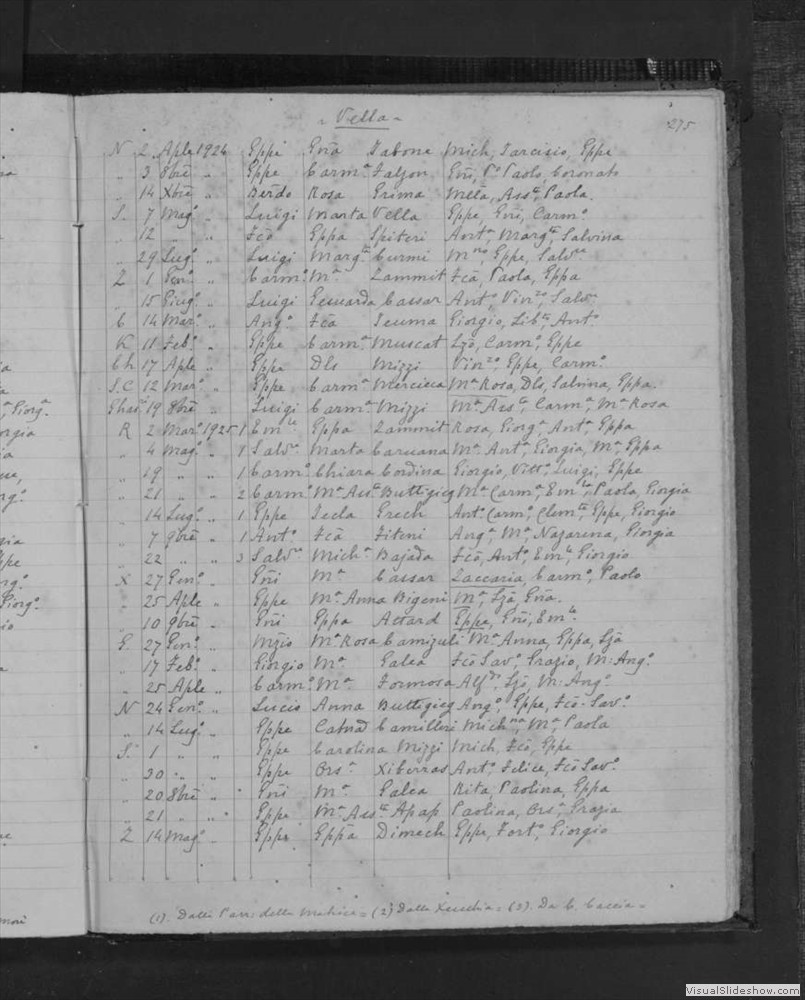 - Vella - 275
N 2 „ Aple 1924 Eppe Gnã Tabone Mich, Tarcisio, Eppe
„ 3 8bre „ Eppe Carmª Falzon Gñi, Pº Paolo, Coronato
„ 14 Xbre „ Berdo Rosa Grima Melã, Assᵗᵃ, Paola.
S. 7 Magº „ Luigi Marta Vella Eppe, Gñi, Carmº
„ 12 „ „ Fcõ Eppa Spiteri Antª, Margᵗᵃ, Salvina
„ 29 Lugº „ Luigi Margᵗᵃ Curmi Eppe, Salvʳᵉ
Z 1 Genº „ Carmº Mª Zammit Fcã, Paola, Eppa
„ 15 Giugº „ Luigi Edwarda Cassar Antº, Vinᶻº, Salvʳᵉ
C 14 Marº „ Angº Fcã Scuma Giorgio, Antº
K 11 Febº „ Eppe Carmª Muscat Ljõ, Carmº, Eppe
Ch 17 Aple „ Eppa Dls Mizzi Vinᶻº, Eppe, Carmº
S.C 12 Marº „ Eppe Carmª Mercieca Mª Rosa, Dls, Salvina, Eppa.
Għasˡ 19 8bre „ Luigi Carmª Mizzi Mª Assᵗᵃ, Carmª, Mª Rosa
R 2 Marº 1925 1 Emˡᵉ Eppa Zammit Rosa, Giorgª, Antª, Eppa
„ 4 Magº „ 1 Salvʳᵉ Marta Caruana Mª Antª, Giorgia, Mª, Eppa
„ 19 „ „ 1 Carmº Chiara Cordina Giorgio, Vittº, Luigi, Eppe
„ 21 „ „ 2 Carmº Mª Assᵗᵃ Buttigieg Mª Carmª, Emˡᵃ, Paola, Giorgia
„ 14 Lugº „ 1 Eppe Tecla Grech Antº Carmº, Clemᵗᵉ, Eppe, Giorgio
„ 7 9bre „ 1 Antº Fcã Fiteni Angª, Mª, Nazarena, Giorgia
„ 22 „ „ 3 Salvʳᵉ Michª Bajada Fcõ, Antº, Emˡᵉ, Giorgio
X 27 Genº „ Gñi Mª Cassar Zaccaria, Carmº, Paolo
„ 25 Aple „ Eppe Mª Anna Bigeni Mª, Ljã, Gñã.
„ 10 9bre „ Gñi Eppa Attard Eppe, Gñi, Emˡᵉ
G. 27 Genº „ Mzio Mª Rosa Camizuli Mª Anna, Eppa, Ljã
„ 17 Febº „ Giorgio Mª Galea Fcõ Savº, Grazio, M: Angº
„ 25 Aple „ Carmº Mª Formosa Ljõ, M: Angº
N 24 Genº „ Lucio Anna Buttigieg Angº, Eppe, Fcõ Savº
„ 14 Lugº „ Eppe Catnã Camilleri Michⁿᵃ, Mª, Paola
S. 1 „ „ Eppe Carolina Mizzi Mich, Fcõ, Eppe
„ 30 „ „ Eppe Orsª Xiberras Antº, Felice, Fcõ Savº
„ 20 8bre „ Gñi Mª Galea Rita, Paolina, Eppa
„ 21 „ „ Eppe Mª Assᵗᵃ Apap Paolina, Orsª, Grazia
Z 14 Magº „ Eppe Eppa Dimech Eppe, Fortº, Giorgio
(1). Dalla Parr: della Matrice = (2) Dalla Xeuchia = (3). Da C. Caccia =
VisualSlideshow.com